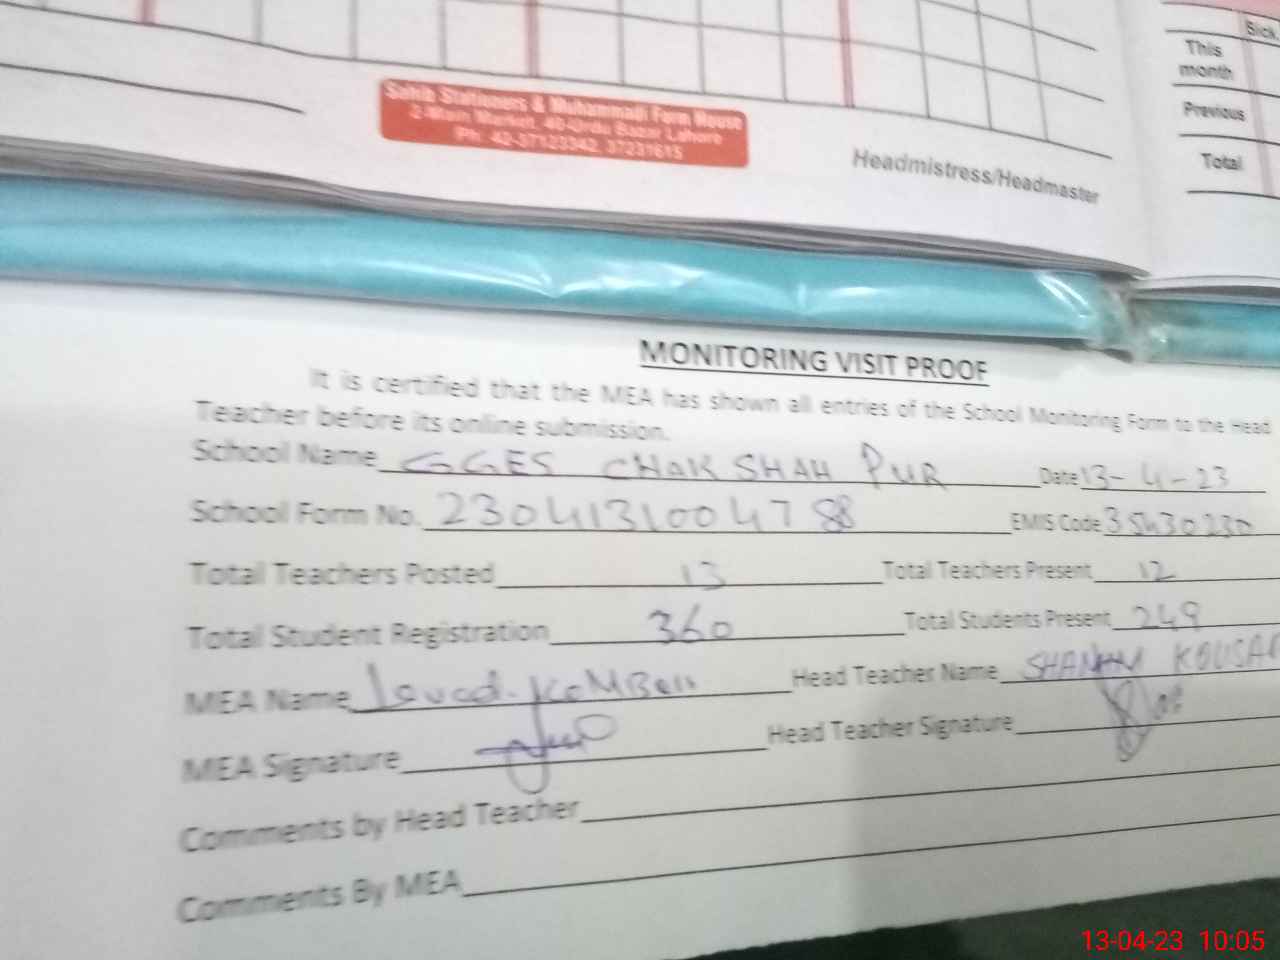 Sick
This
month
Previous
Total
Sahib Stationers & Muhammadi Form House
2-Main Market, 40-Urdu Bazar Lahore
Ph: 42-37123342, 37231615
Headmistress/Headmaster
MONITORING VISIT PROOF
It is certified that the MEA has shown all entries of the School Monitoring Form to the Head
Teacher before its online submission.
School Name GGES CHAK SHAH PUR Date 13-4-23
School Form No. 2304131004788 EMIS Code 35430230
Total Teachers Posted 13 Total Teachers Present 12
Total Student Registration 360 Total Students Present 249
MEA Name Head Teacher Name KOUSAR
MEA Signature Head Teacher Signature
Comments by Head Teacher
Comments By MEA
13-04-23 10:05